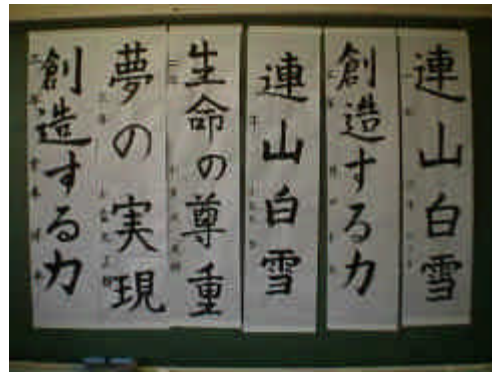 連山白雪
創造する力
連山白雪
生命の尊重
夢の実現
創造する力